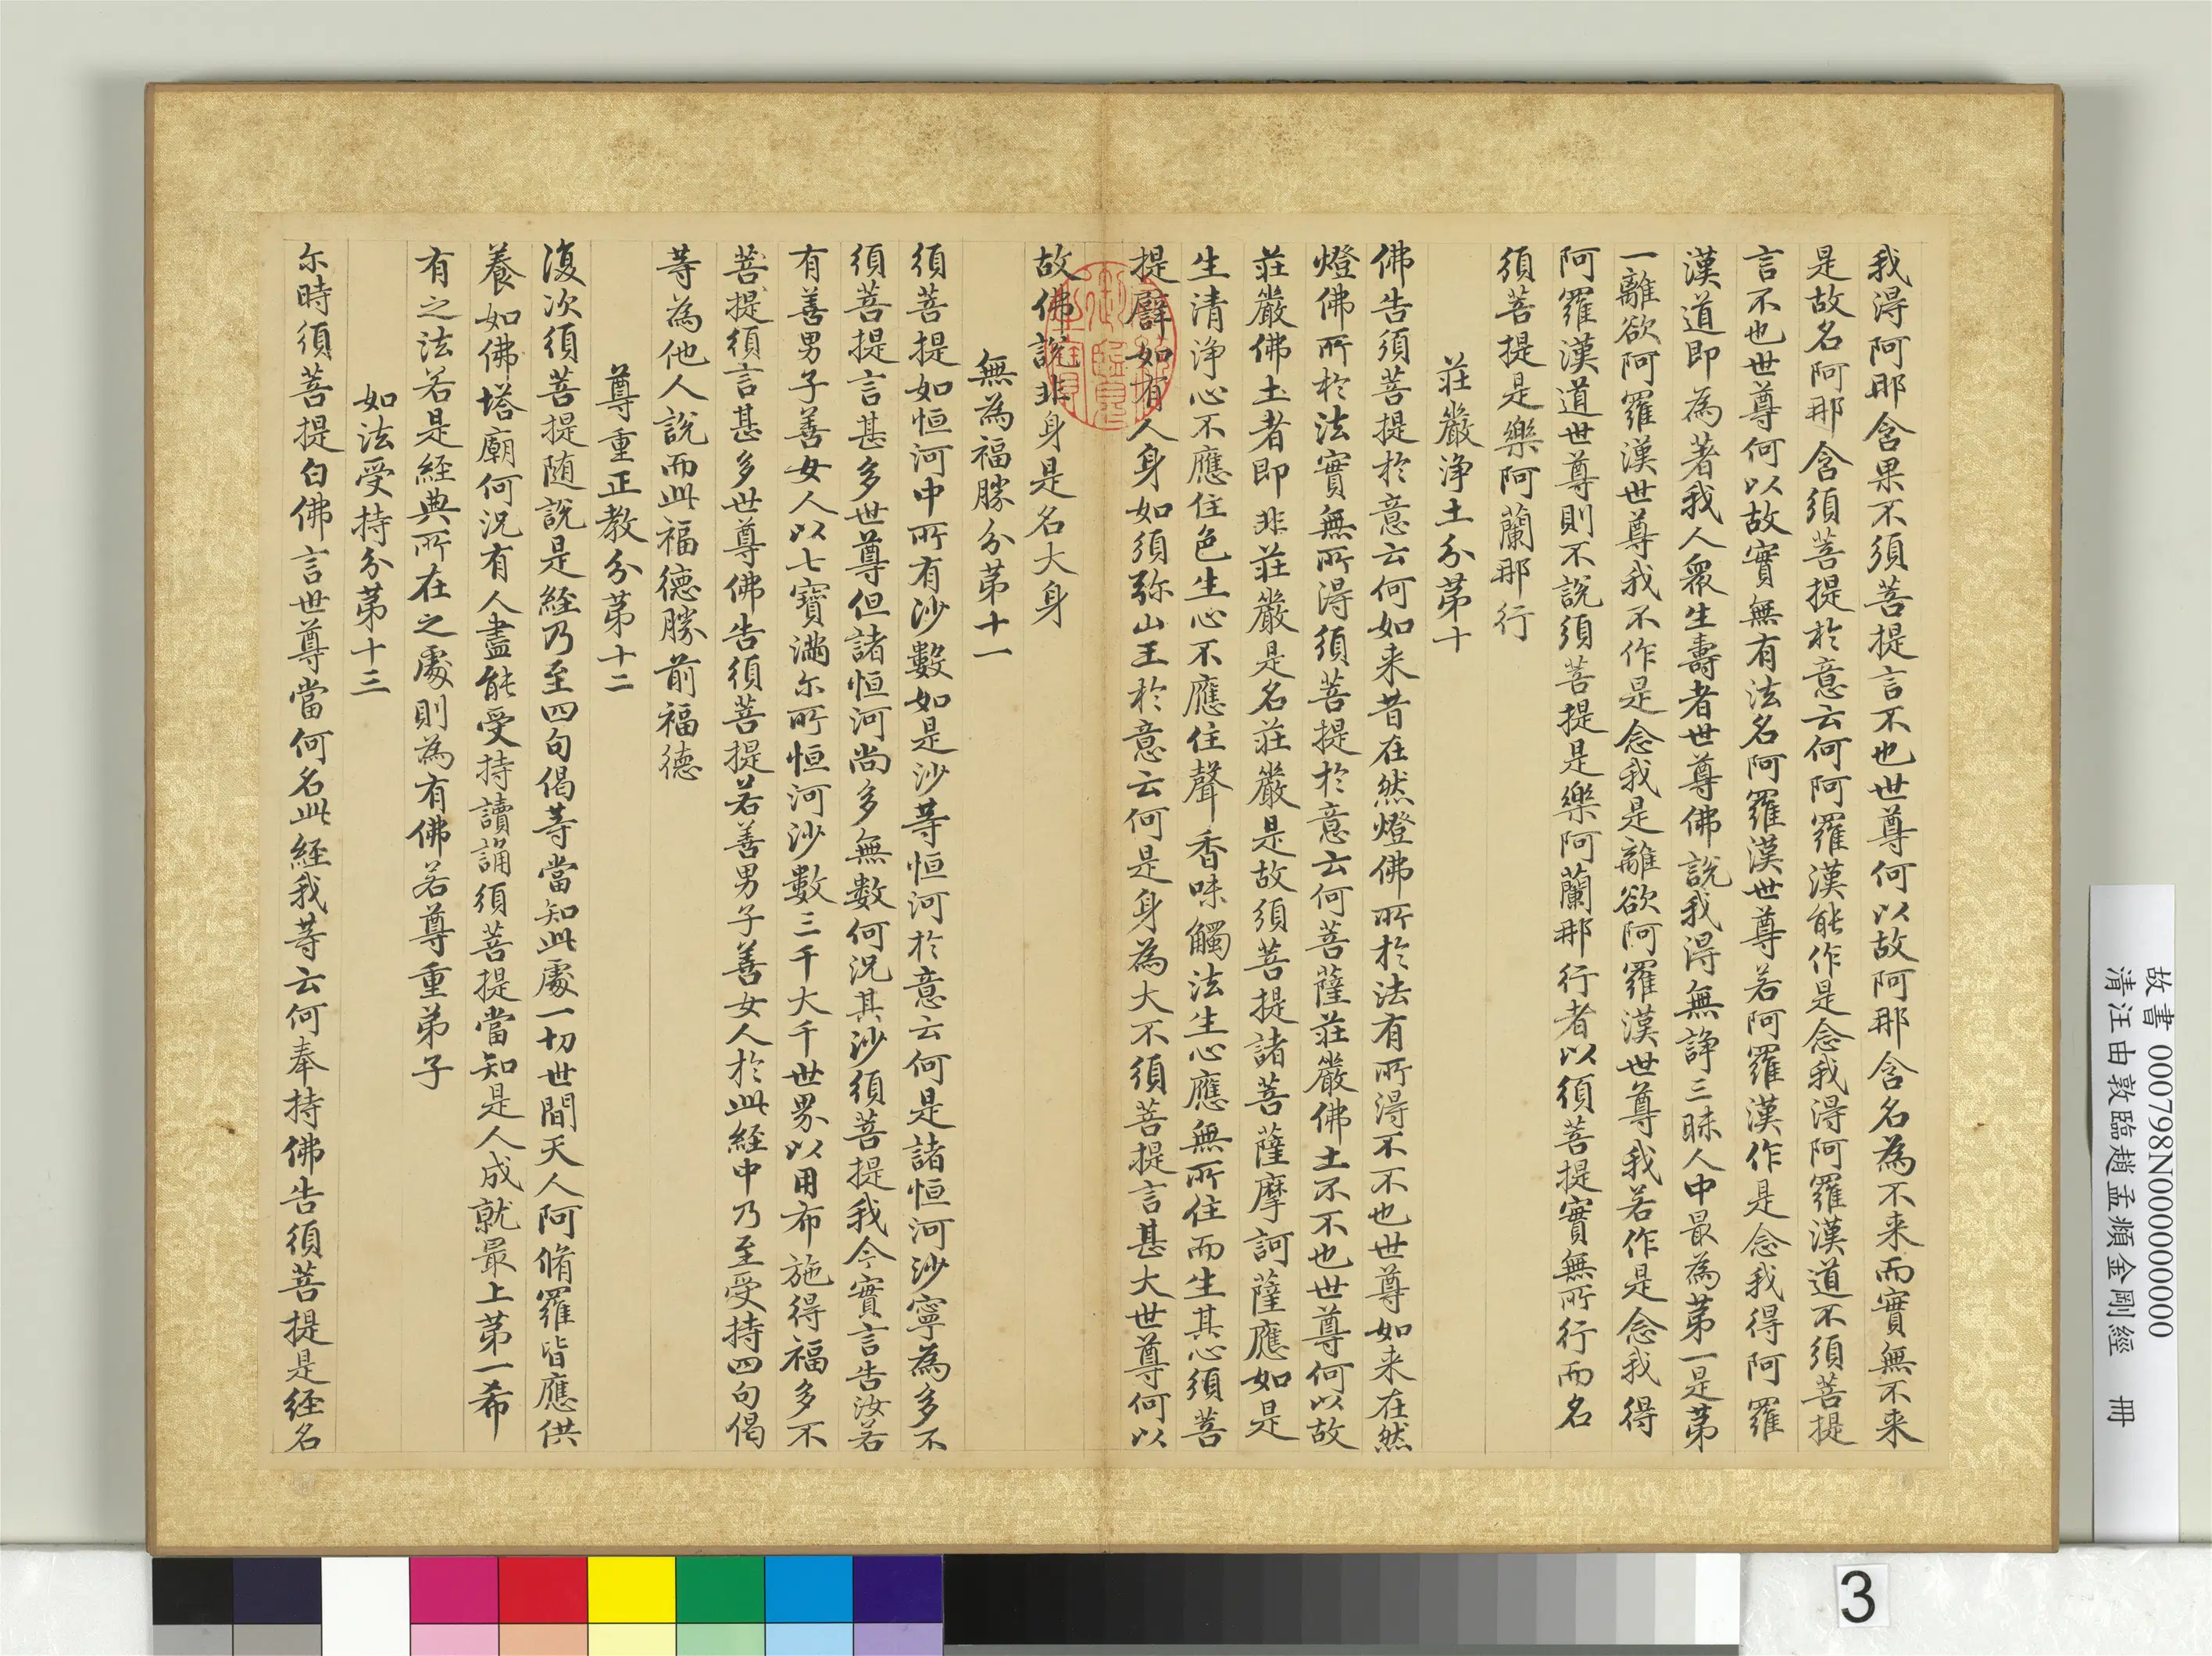 我淂阿那含果不須菩提言不也世尊何以故阿那含名為不来而實無不来
是故名阿那含須菩提扵意云何阿羅漢能作是念我淂阿羅漢道不須菩提
言不也世尊何以故實無有法名阿羅漢世尊若阿羅漢作是念我得阿羅
漢道即為著我人衆生壽者世尊佛說我淂無諍三昧人中最為第一是第
一離欲阿羅漢世尊我不作是念我是離欲阿羅漢世尊我若作是念我得
阿羅漢道世尊則不說須菩提是樂阿蘭那行者以須菩提實無所行而名
須菩提是樂阿蘭那行
莊嚴淨土分第十
佛告須菩提扵意云何如来昔在然燈佛所扵法有所淂不不也世尊如来在然
燈佛所扵法實無所淂須菩提扵意云何菩薩莊嚴佛土不不也世尊何以故
莊嚴佛土者即非莊嚴是名莊嚴是故須菩提諸菩薩摩訶薩應如是
生清淨心不應住色生心不應住聲香味觸法生心應無所住而生其心須菩
提譬如有人身如須弥山王扵意云何是身為大不須菩提言甚大世尊何以
故佛說非身是名大身
無為福勝分第十一
須菩提如恒河中所有沙數如是沙等恒河扵意云何是諸恒河沙寧為多不
須菩提言甚多世尊但諸恒河尚多無數何況其沙須菩提我今實言告汝若
有善男子善女人以七寶滿尔所恒河沙數三千大千世界以用布施得福多不
菩提須言甚多世尊佛告須菩提若善男子善女人扵此経中乃至受持四句偈
等為他人說而此福德勝前福德
尊重正教分第十二
復次須菩提随說是経乃至四句偈等當知此處一切世間天人阿脩羅皆應供
養如佛塔廟何況有人盡能受持讀誦須菩提當知是人成就最上第一希
有之法若是経典所在之處則為有佛若尊重弟子
如法受持分第十三
尔時須菩提白佛言世尊當何名此経我等云何奉持佛告須菩提是経名
故書 000798N000000000
清汪由敦臨趙孟頫金剛經 冊
3